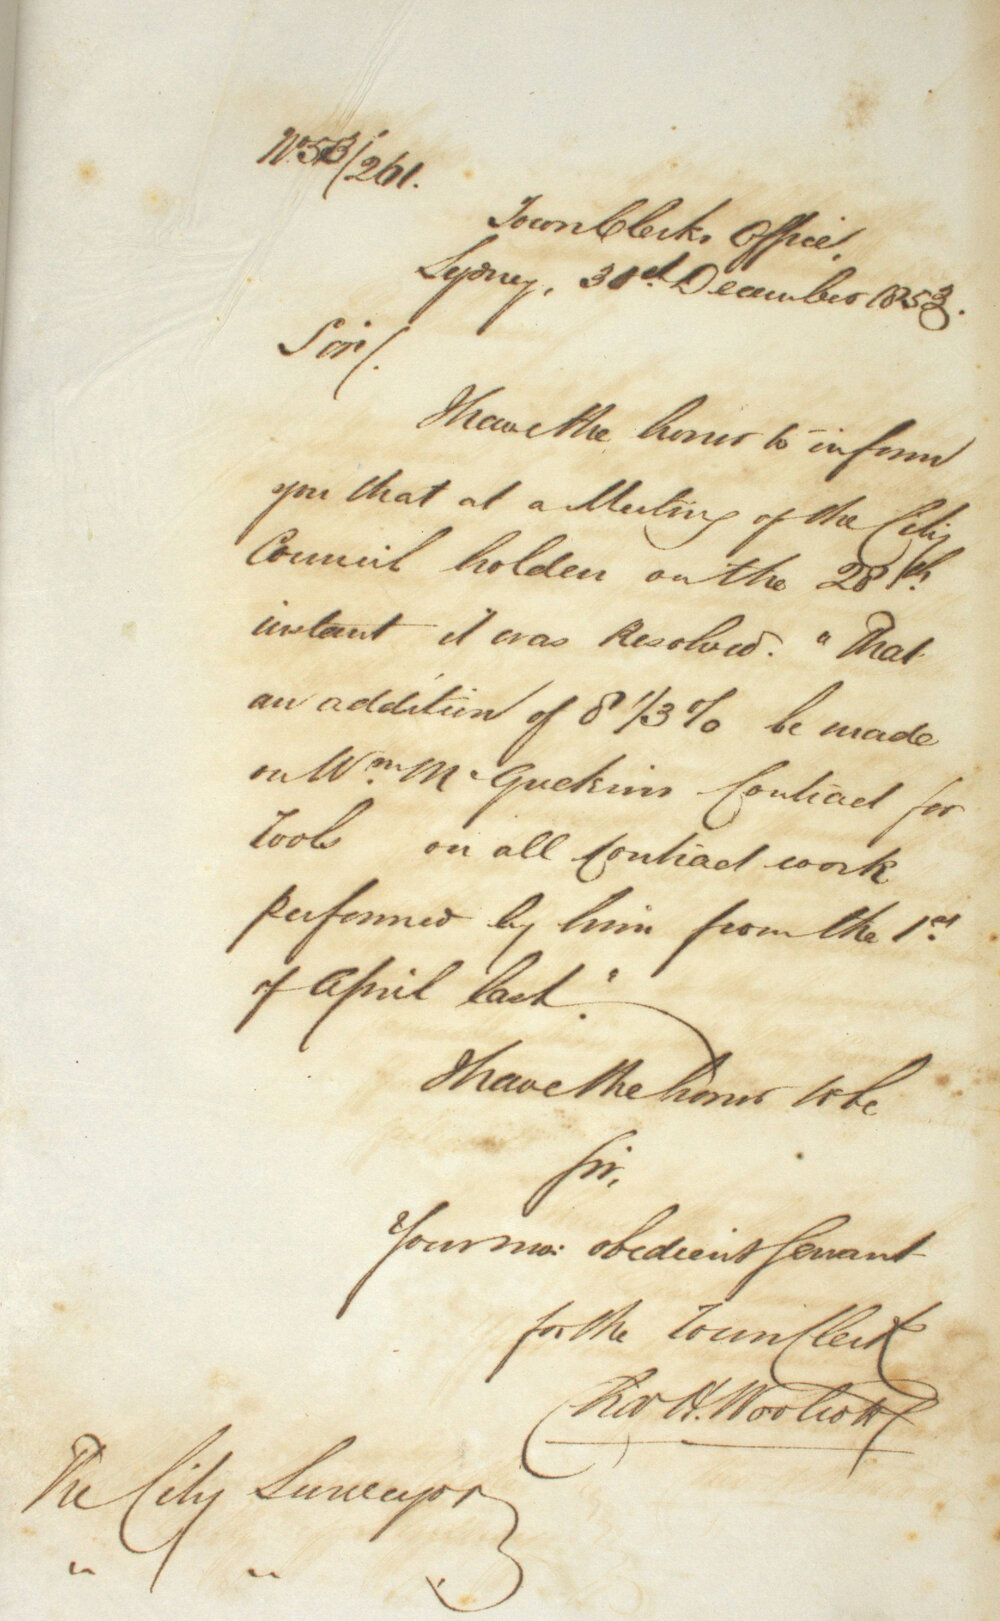 No. 53/261.
Town Clerks Office,
Sydney, 31st. December 1853.
Sir,
I have the honor to inform
you that at a Meeting of the City
Council holden on the 28th.
instant it was Resolved. "That
an addition of 8 1/3 % be made
on Wm. McGuckins Contract for
Tools on all Contract work
performed by him from the 1st.
of April last."
I have the honor to be
Sir,
Your mo: obedient Servant
for the Town Clerk
Chas H. Woolcott
The City Surveyor
" " "